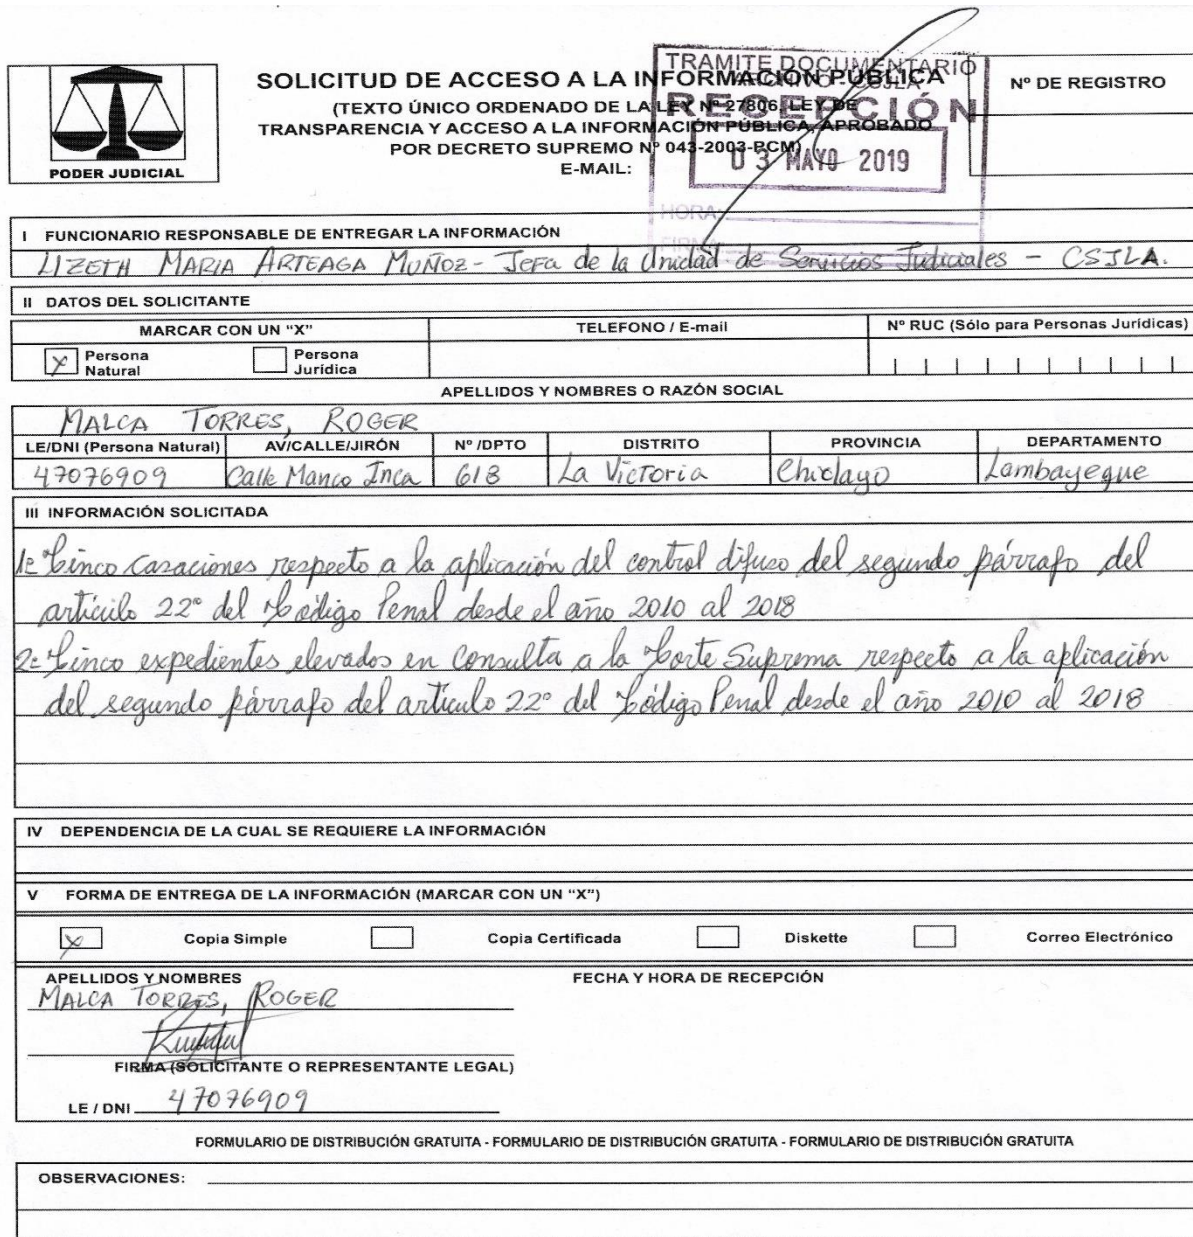 PODER JUDICIAL
SOLICITUD DE ACCESO A LA INFORMACIÓN PÚBLICA
(TEXTO ÚNICO ORDENADO DE LA LEY Nº 27806, LEY DE
TRANSPARENCIA Y ACCESO A LA INFORMACIÓN PÚBLICA, APROBADO
POR DECRETO SUPREMO Nº 043-2003-PCM)
E-MAIL:
TRAMITE DOCUMENTARIO
CSJLA
RECEPCIÓN
03 MAYO 2019
HORA:
FIRMA:
Nº DE REGISTRO
I FUNCIONARIO RESPONSABLE DE ENTREGAR LA INFORMACIÓN
LIZETH MARIA ARTEAGA MUÑOZ - Jefa de la Unidad de Servicios Judiciales - CSJLA.
II DATOS DEL SOLICITANTE
MARCAR CON UN “X” TELEFONO / E-mail Nº RUC (Sólo para Personas Jurídicas)
X Persona Natural Persona Jurídica
APELLIDOS Y NOMBRES O RAZÓN SOCIAL
MALCA TORRES, ROGER
LE/DNI (Persona Natural) AV/CALLE/JIRÓN Nº /DPTO DISTRITO PROVINCIA DEPARTAMENTO
47076909 Calle Manco Inca 618 La Victoria Chiclayo Lambayeque
III INFORMACIÓN SOLICITADA
1: Cinco Casaciones respecto a la aplicación del control difuso del segundo párrafo del
artículo 22° del Código Penal desde el año 2010 al 2018
2: Cinco expedientes elevados en Consulta a la Corte Suprema respecto a la aplicación
del segundo párrafo del artículo 22° del Código Penal desde el año 2010 al 2018
IV DEPENDENCIA DE LA CUAL SE REQUIERE LA INFORMACIÓN
V FORMA DE ENTREGA DE LA INFORMACIÓN (MARCAR CON UN “X”)
X Copia Simple Copia Certificada Diskette Correo Electrónico
APELLIDOS Y NOMBRES FECHA Y HORA DE RECEPCIÓN
MALCA TORRES, ROGER
FIRMA (SOLICITANTE O REPRESENTANTE LEGAL)
LE / DNI 47076909
FORMULARIO DE DISTRIBUCIÓN GRATUITA - FORMULARIO DE DISTRIBUCIÓN GRATUITA - FORMULARIO DE DISTRIBUCIÓN GRATUITA
OBSERVACIONES: